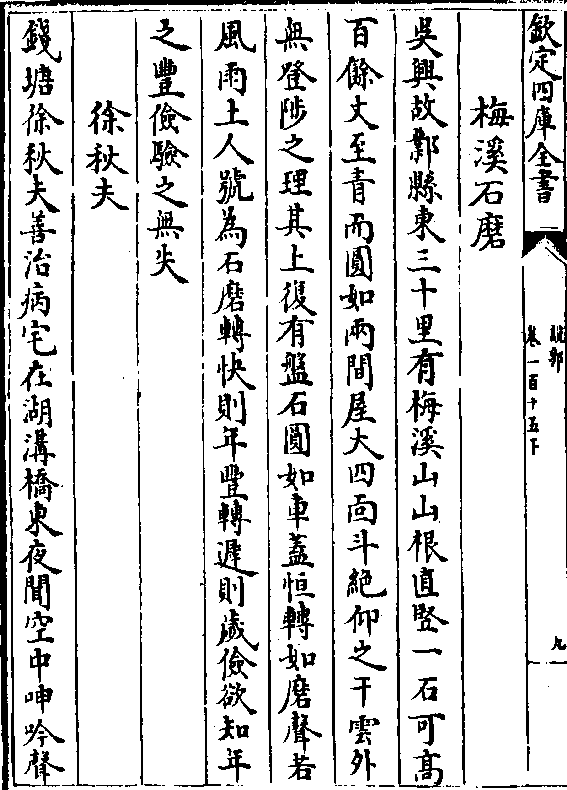 欽定四庫全書
說郛
卷一百十五下
九
梅溪石磨
吳興故鄣縣東三十里有梅溪山山根直竪一石可高
百餘丈至青而圓如兩間屋大四面斗絶仰之干雲外
無登陟之理其上復有盤石圓如車葢恒轉如磨聲若
風雨土人號為石磨轉快則年豐轉遲則嵗儉欲知年
之豐儉驗之無失
徐秋夫
錢塘徐秋夫善治病宅在湖溝橋東夜聞空中呻吟聲